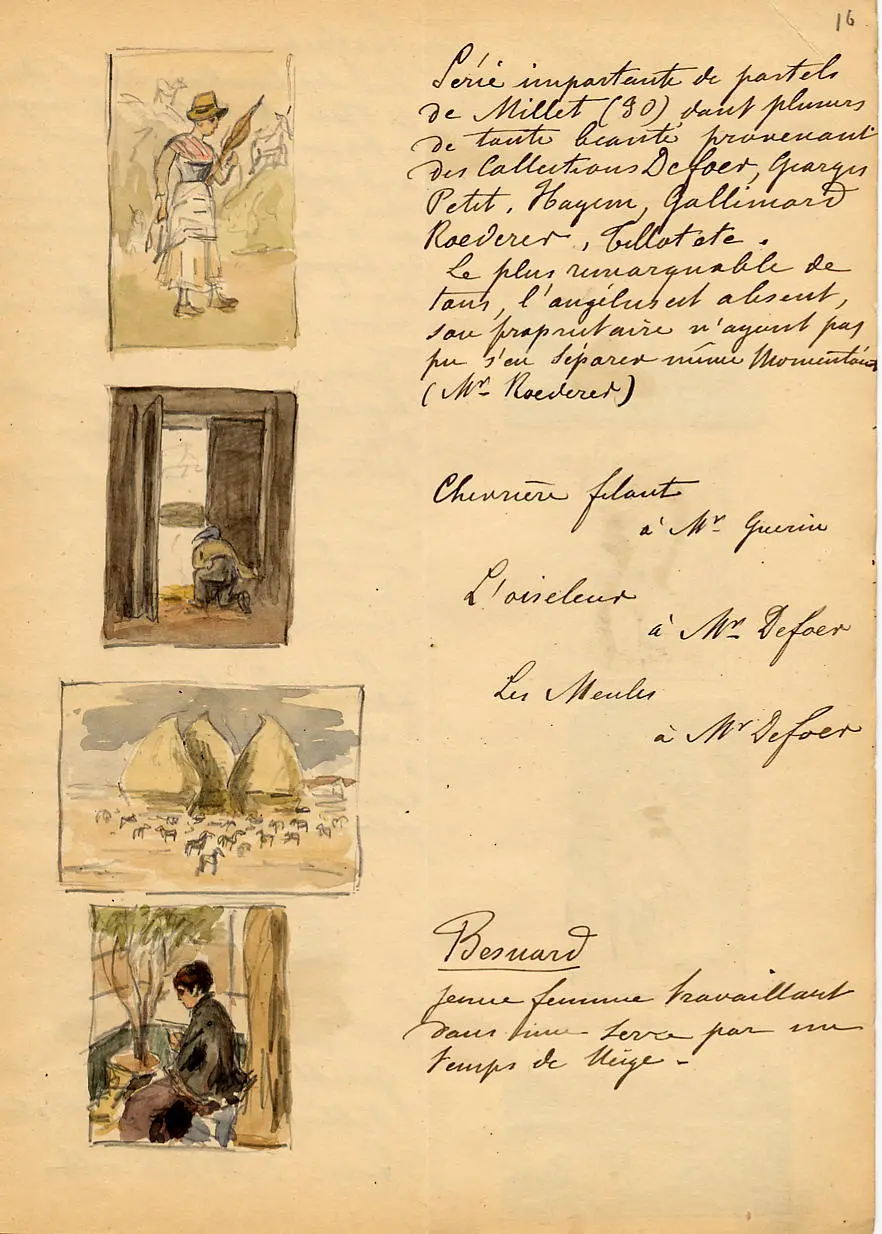 16
Série importante de pastels
de Millet (30) dont plusieurs
de toute beauté, provenant
des Collections Defoer, Georges
Petit, Hayem, Gallimard
Roederer, Tillot etc.
Le plus remarquable de
tous, l'angélus est absent,
son propriétaire n'ayant pas
pu s'en séparer même Momentané
(Mr Roederer)
Chevrière filant
à Mr Guerin
L'oiseleur
à Mr Defoer
Les Meules
à Mr Defoer
Besnard
jeune femme travaillant
dans une serre par un
temps de Neige -